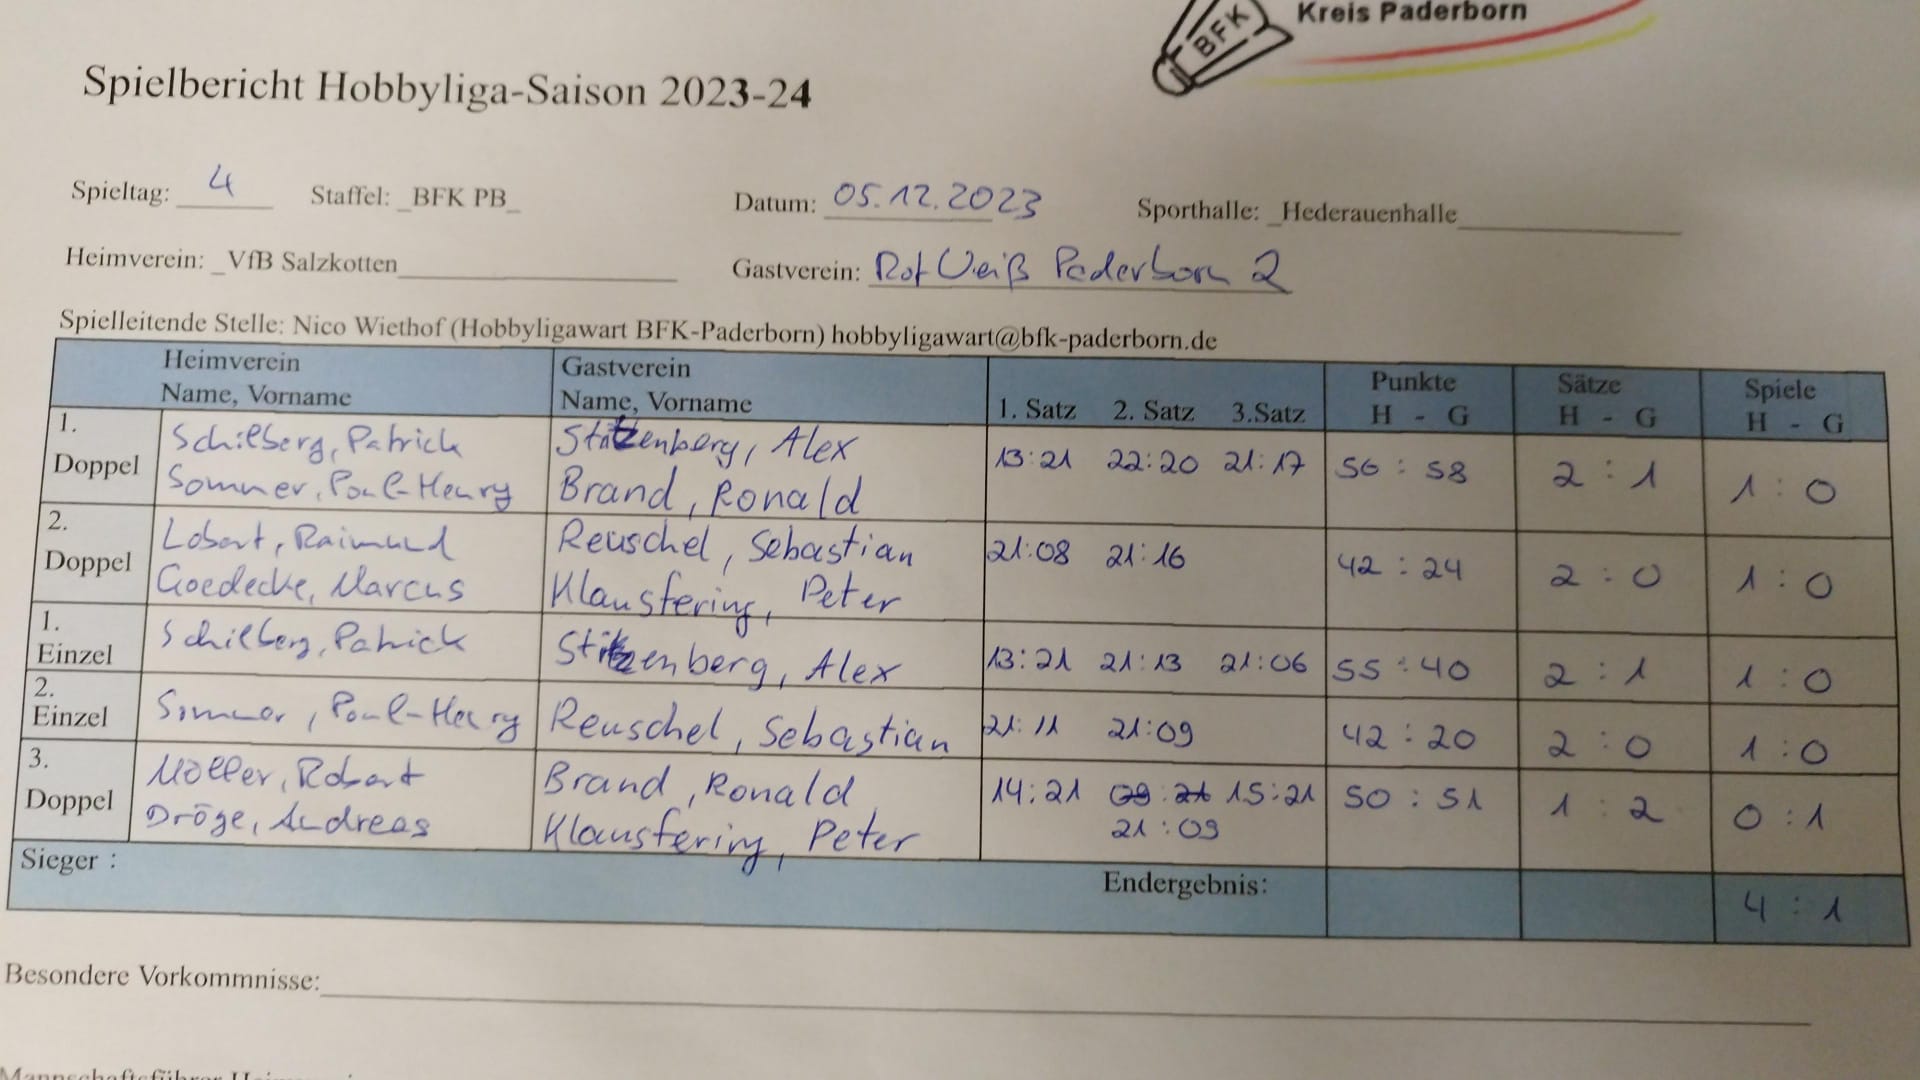 BFK Kreis Paderborn
Spielbericht Hobbyliga-Saison 2023-24
Spieltag: 4 Staffel: _BFK PB_ Datum: 05.12.2023 Sporthalle: _Hederauenhalle
Heimverein: _VfB Salzkotten Gastverein: Rot Weiß Paderborn 2
Spielleitende Stelle: Nico Wiethof (Hobbyligawart BFK-Paderborn) hobbyligawart@bfk-paderborn.de
Heimverein Gastverein Punkte Sätze Spiele
Name, Vorname Name, Vorname 1. Satz 2. Satz 3.Satz H - G H - G H - G
1. Schilberg, Patrick Stitzenberg, Alex
Doppel 13:21 22:20 21:17 56 : 58 2 : 1 1 : 0
Sommer, Paul-Henry Brand, Ronald
2. Lobart, Raimund Reuschel, Sebastian
Doppel 21:08 21:16 42 : 24 2 : 0 1 : 0
Goedecke, Marcus Klausfering, Peter
1. Schilberg, Patrick Stitzenberg, Alex
Einzel 13:21 21:13 21:06 55 : 40 2 : 1 1 : 0
2. Sommer, Paul-Henry Reuschel, Sebastian
Einzel 21:11 21:09 42 : 20 2 : 0 1 : 0
3. Möller, Robert Brand, Ronald
Doppel 14:21 09:21 15:21 50 : 51 1 : 2 0 : 1
Dröge, Andreas Klausfering, Peter 21:09
Sieger : Endergebnis: 4 : 1
Besondere Vorkommnisse: